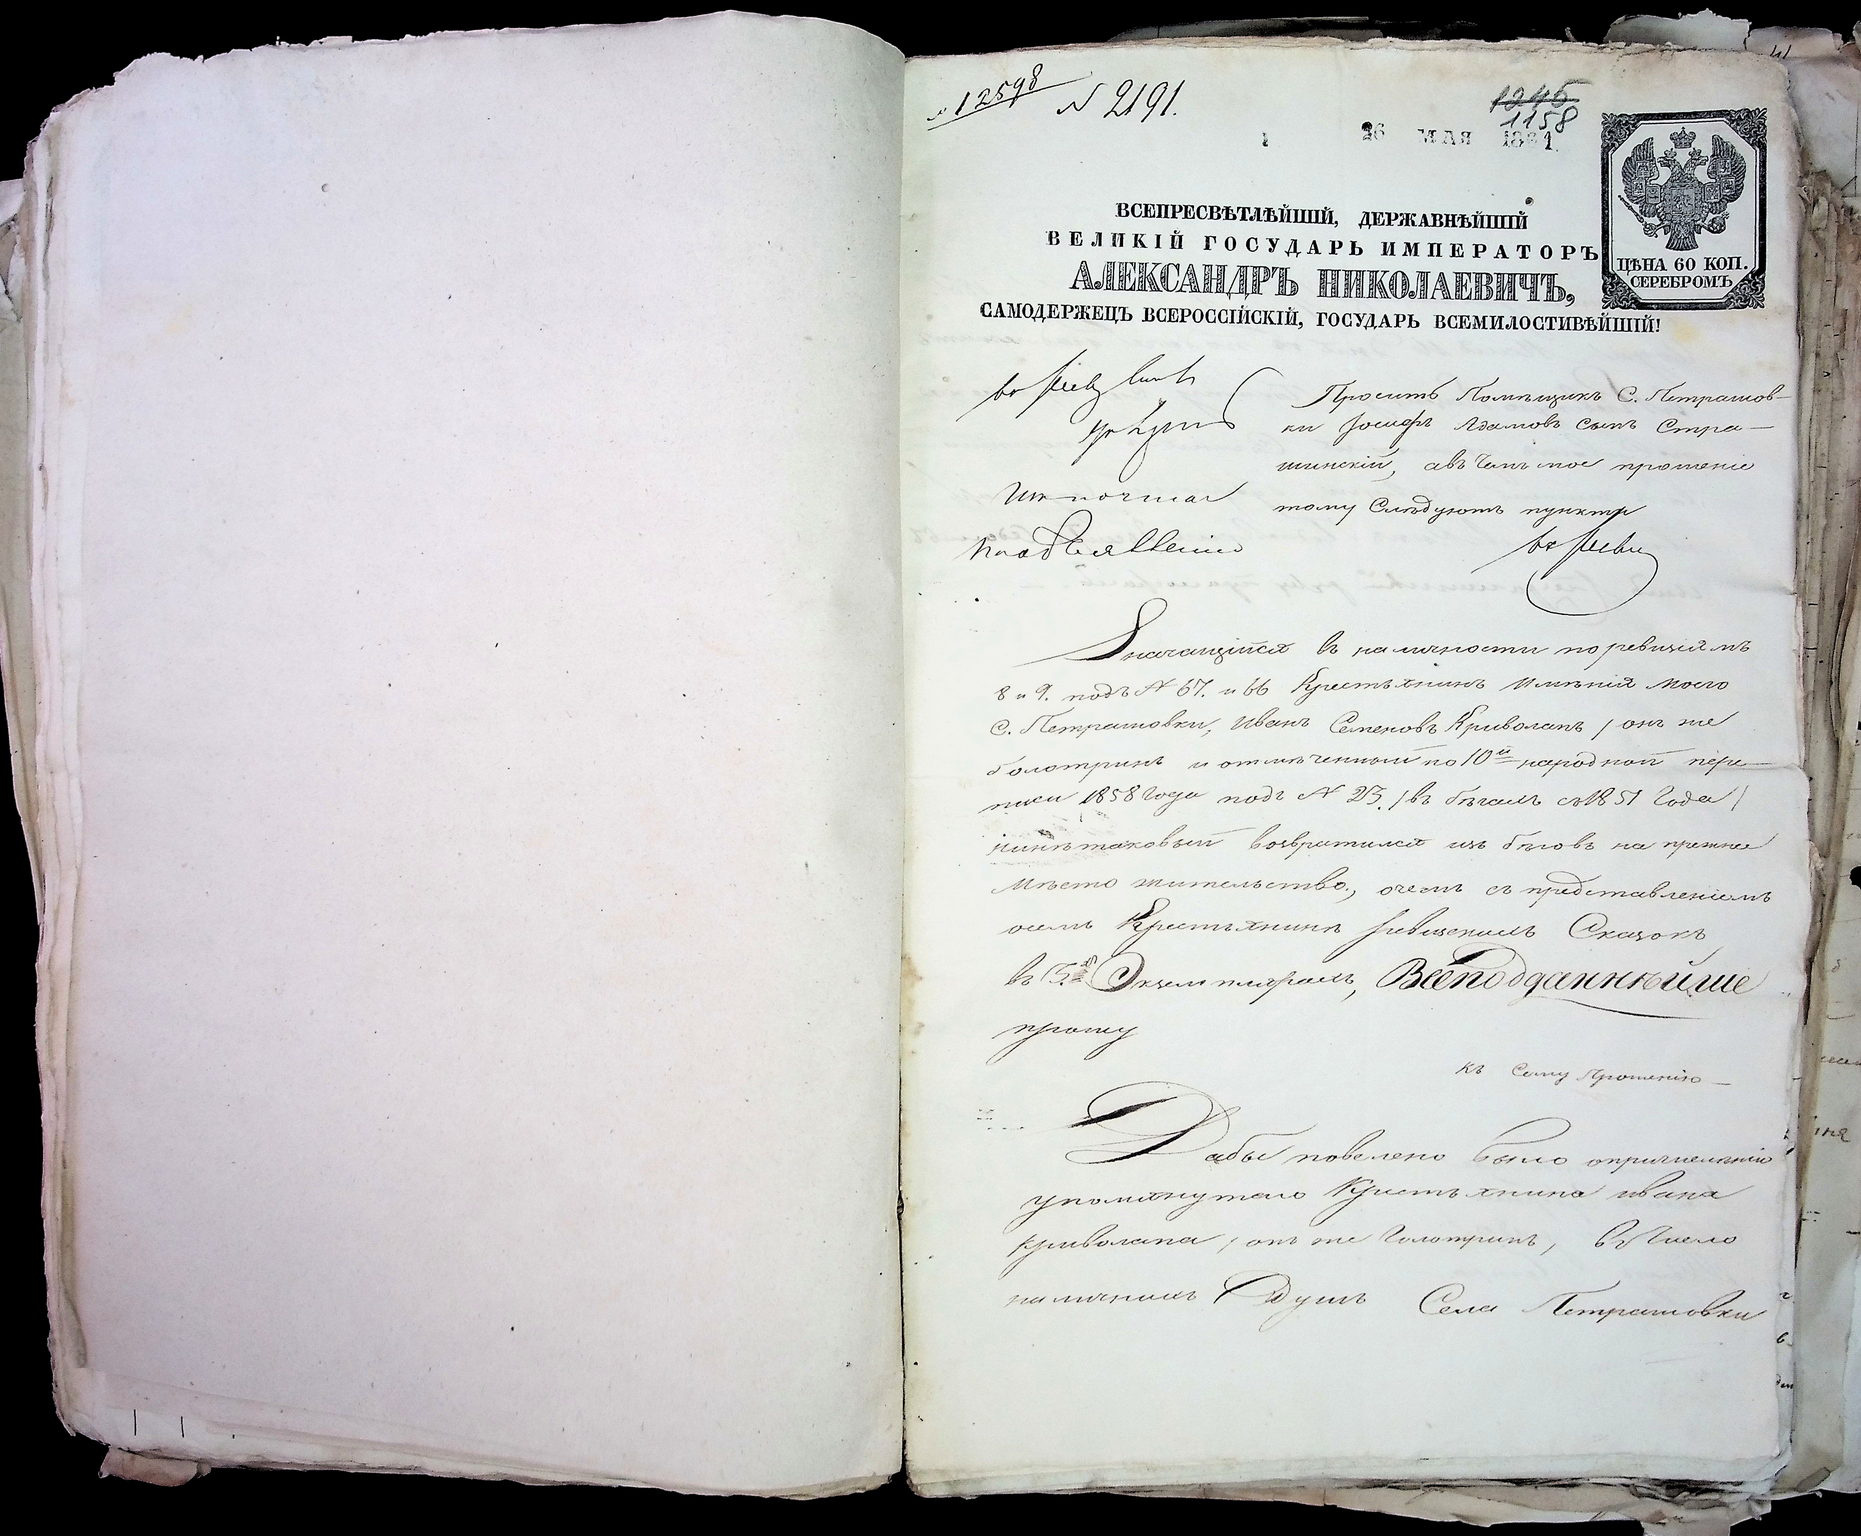 № 12598
N 2191.
1245
1158
26 МАЯ 1861.
ЦѢНА 60 КОП.
СЕРЕБРОМЪ
ВСЕПРЕСВѢТЛѢЙШІЙ, ДЕРЖАВНѢЙШІЙ
ВЕЛИКІЙ ГОСУДАРЬ ИМПЕРАТОРЪ
АЛЕКСАНДРЪ НИКОЛАЕВИЧЪ,
САМОДЕРЖЕЦЪ ВСЕРОССІЙСКІЙ, ГОСУДАРЬ ВСЕМИЛОСТИВѢЙШІЙ!
Проситъ Помѣщикъ С. Петрашов-
ки Іосифъ Адамовъ сынъ Стра-
шинскій, авъ чемъ мое прошеніе
тому Слѣдуютъ пункты
Значащійся въ наличности по ревизіямъ
8 и 9. подъ N 67. и 66 Крестьянинъ имѣнія моего
С. Петрашовки, Иванъ Семеновъ Криволапъ / онъ же
болотринъ и отмѣченный по 10й народной пере-
писи 1858 Года подъ N 25. / въ бѣгахъ съ 1851 Года /
нинѣ таковый возвратился изъ бѣговъ на прежнее
мѣсто жительство, очемъ съ представленіемъ
осемъ Крестьянинѣ ревизскихъ Сказокъ
въ 3х Экземплярахъ, Всеподданнѣйше
прошу
къ Сему прошенію
Дабы повелено было опричисленіи
упомянутаго Крестьянина ивана
Криволапа / онъ же болотринъ, въ число
наличнихъ Душъ Села Петрашовки